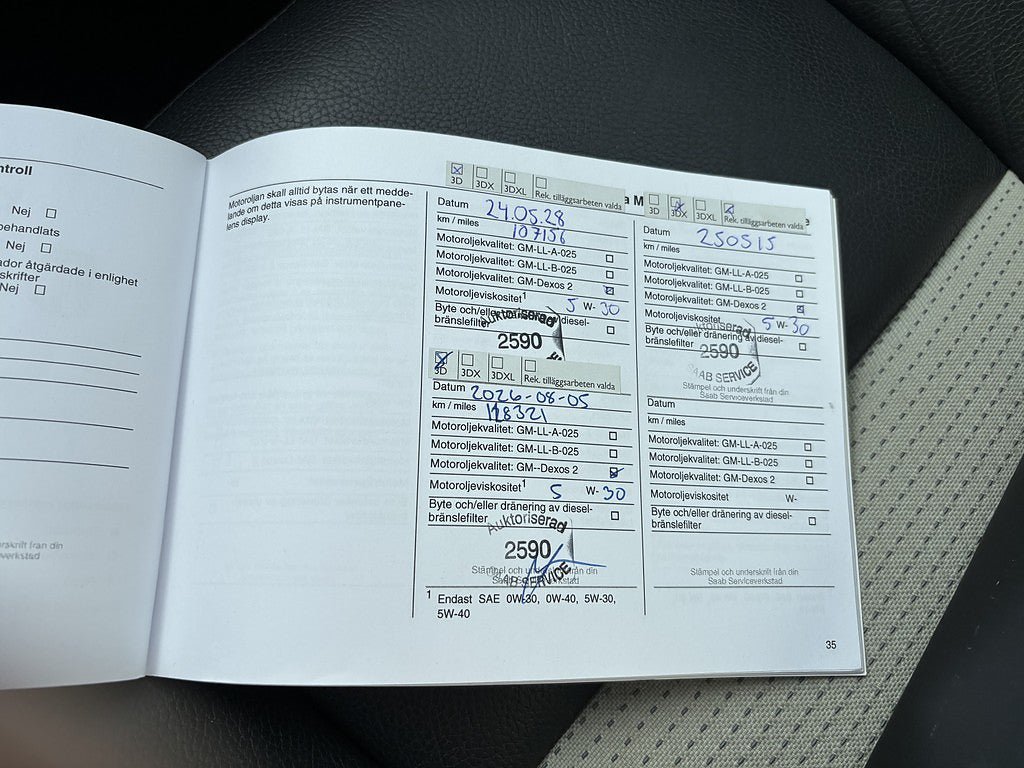 ntroll
Nej
behandlats
Nej
ador åtgärdade i enlighet
skrifter
Nej
Motoroljan skall alltid bytas när ett medde-
lande om detta visas på instrumentpane-
lens display.
3D 3DX 3DXL Rek. tilläggsarbeten valda
Datum 24.05.28
km / miles 107156
Motoroljekvalitet: GM-LL-A-025
Motoroljekvalitet: GM-LL-B-025
Motoroljekvalitet: GM-Dexos 2
Motoroljeviskositet1 5 W-30
Byte och/eller diesel-
bränslefilter
Auktoriserad
2590
3D 3DX 3DXL Rek. tilläggsarbeten valda
Datum 2026-08-05
km / miles 128321
Motoroljekvalitet: GM-LL-A-025
Motoroljekvalitet: GM-LL-B-025
Motoroljekvalitet: GM--Dexos 2
Motoroljeviskositet1 5 W-30
Byte och/eller dränering av diesel-
bränslefilter
Auktoriserad
2590
SAAB SERVICE
Stämpel och underskrift från din
Saab Serviceverkstad
1 Endast SAE 0W-30, 0W-40, 5W-30,
5W-40
a M
3D 3DX 3DXL Rek. tilläggsarbeten valda
Datum 250515
km / miles
Motoroljekvalitet: GM-LL-A-025
Motoroljekvalitet: GM-LL-B-025
Motoroljekvalitet: GM-Dexos 2
Motoroljeviskositet 5 W-30
Byte och/eller dränering av diesel-
bränslefilter
Auktoriserad
2590
SAAB SERVICE
Stämpel och underskrift från din
Saab Serviceverkstad
Datum
km / miles
Motoroljekvalitet: GM-LL-A-025
Motoroljekvalitet: GM-LL-B-025
Motoroljekvalitet: GM-Dexos 2
Motoroljeviskositet W-
Byte och/eller dränering av diesel-
bränslefilter
Stämpel och underskrift från din
Saab Serviceverkstad
35